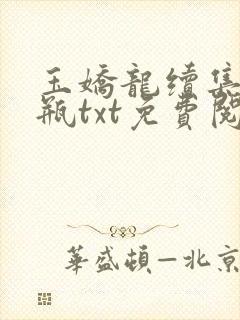 玉嬌龍續集
瓶txt免費閱
華盛頓–北京